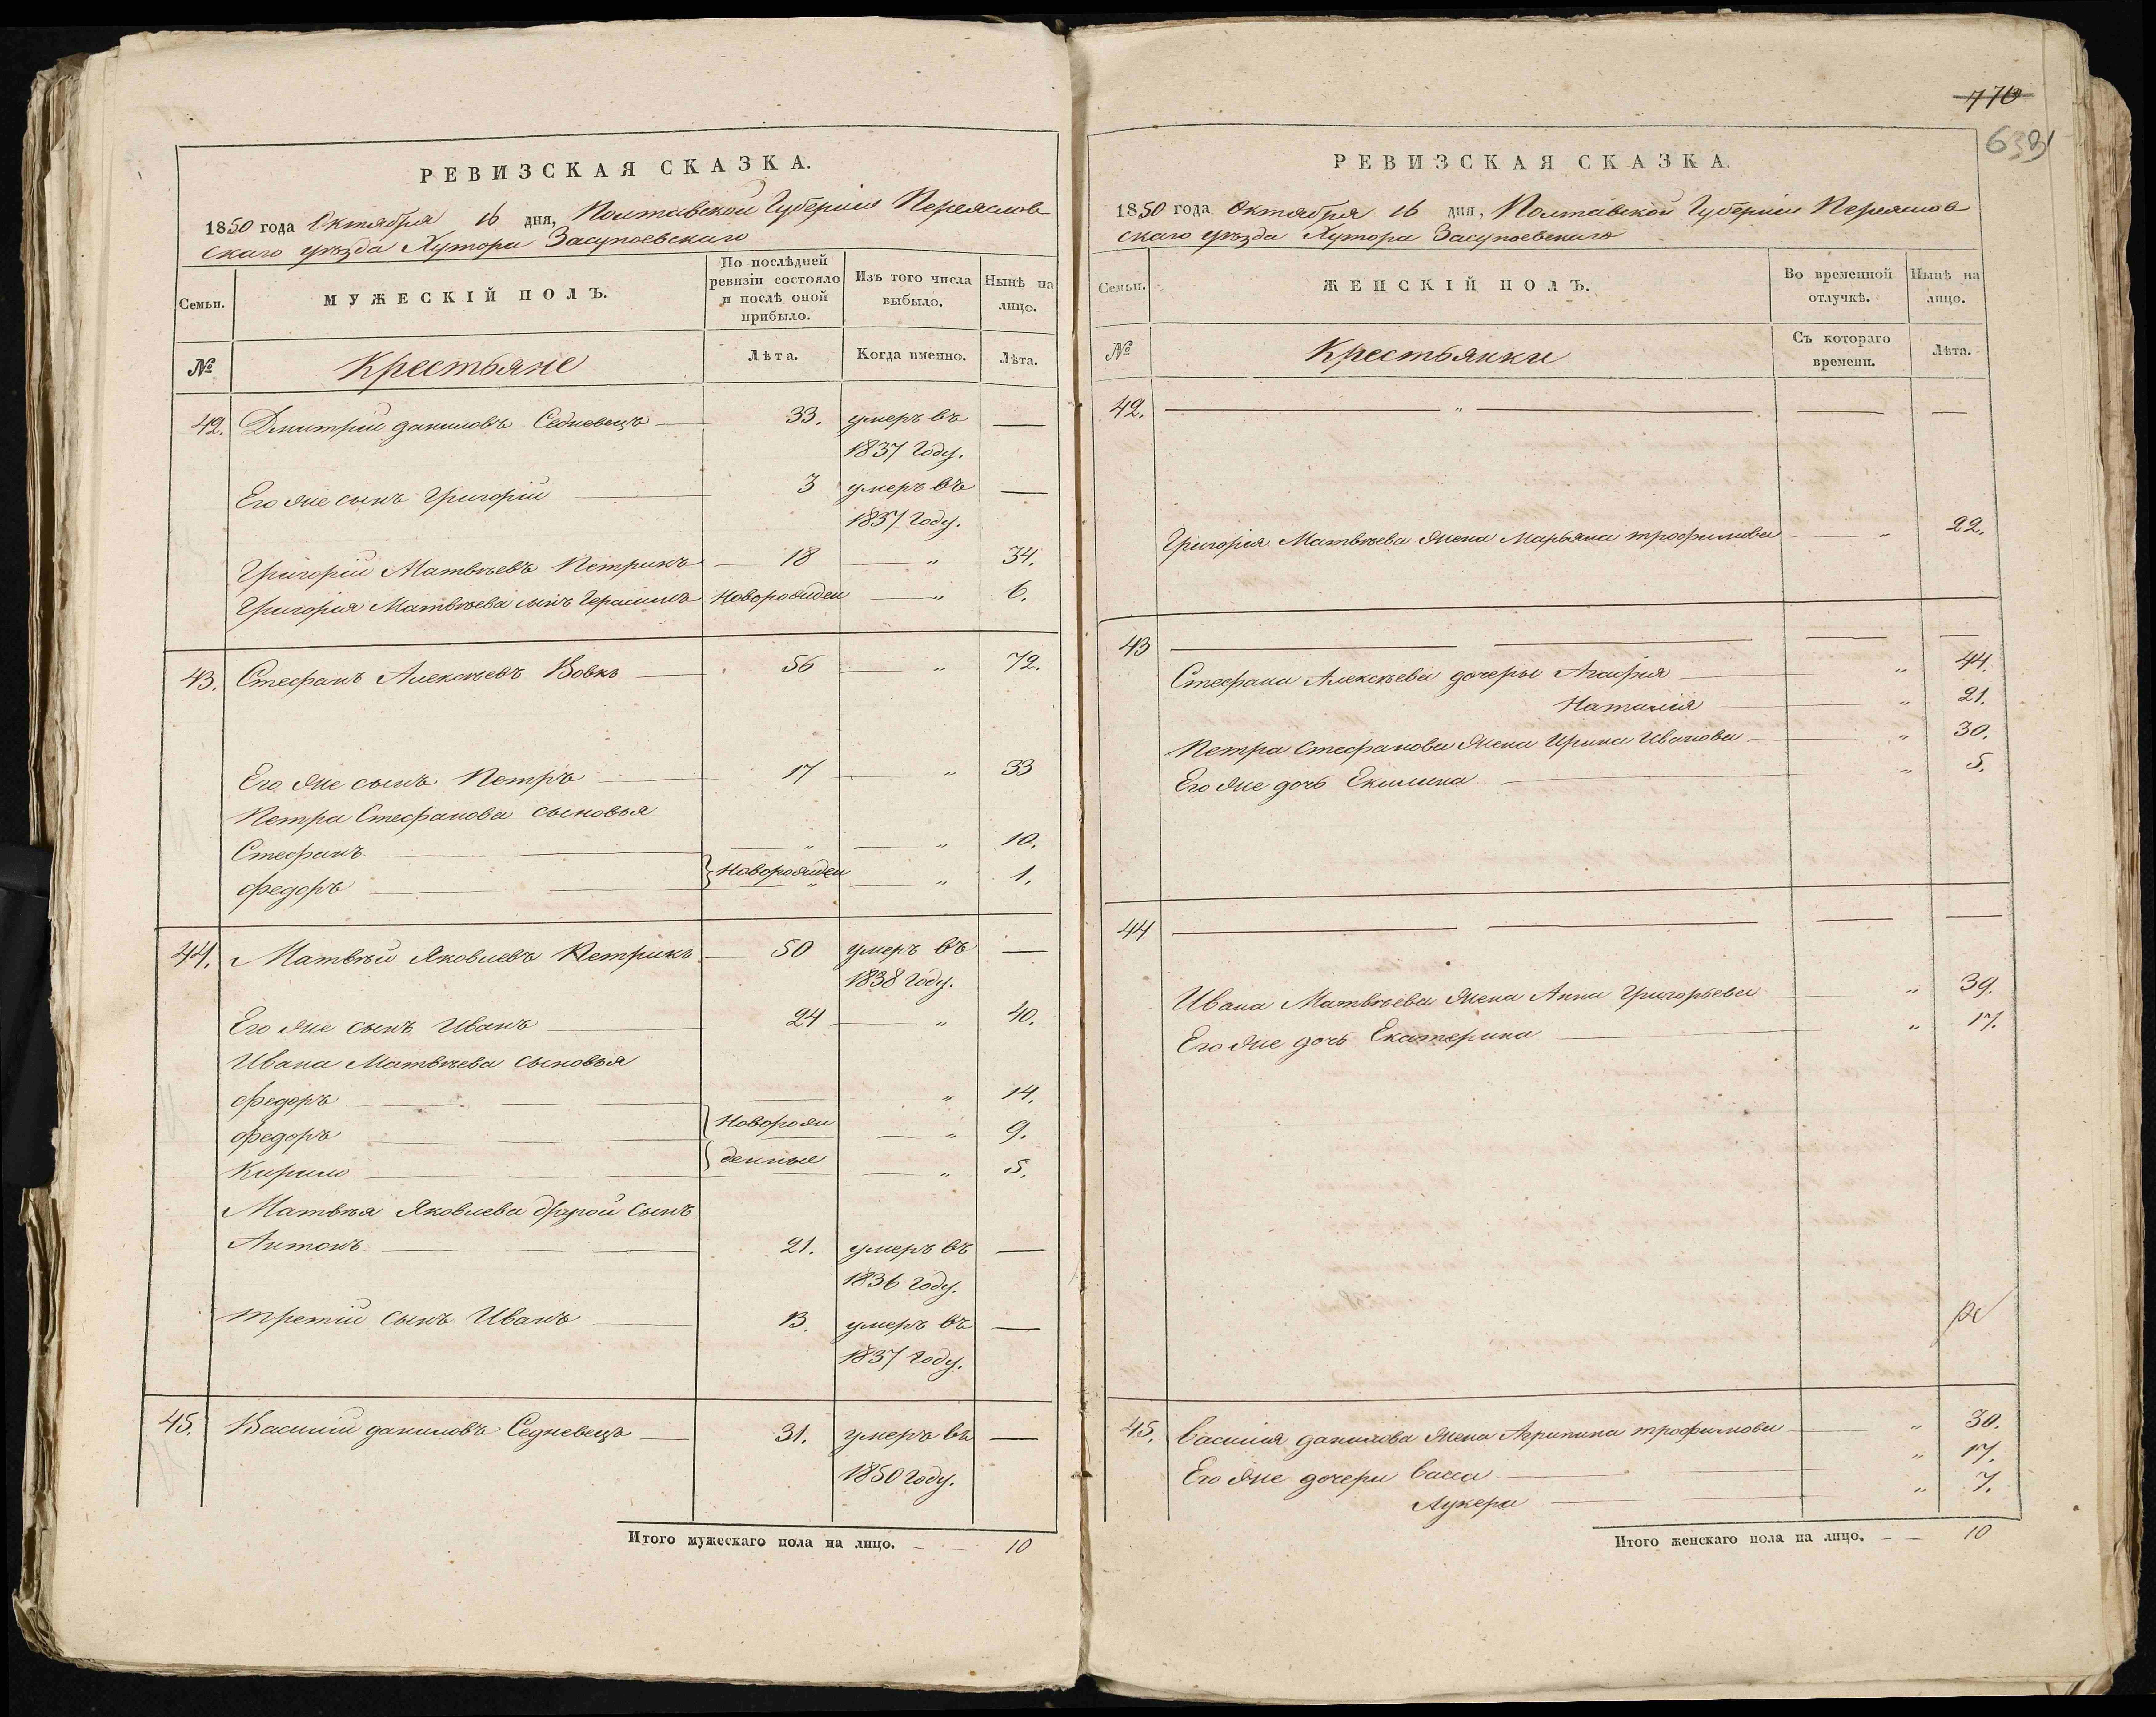 РЕВИЗСКАЯ СКАЗКА.
1850 года Октября 16 дня, Полтавской Губернии Переяслов
скаго уѣзда Хутора Засупоевскаго
Семьи.
МУЖЕСКІЙ ПОЛЪ.
По послѣдней
ревизіи состояло
и послѣ оной
прибыло.
Изъ того числа
выбыло.
Нынѣ на
лицо.
№
Крестьяне
Лѣта.
Когда именно.
Лѣта.
42. Дмитрій даниловъ Седневецъ — 33. умеръ въ —
1837 году.
Его же сынъ Григорій — 3 умеръ въ —
1837 году.
Григорій Матвѣевъ Петрикъ — 18 — „ 34.
Григорія Матвѣева сынъ Герасимъ Новорожден — „ 6.
43. Стефанъ Алексѣевъ Вовкъ — 56 — „ 72.
Его же сынъ Петръ — 17 — „ 33
Петра Стефанова сыновья
Стефанъ — — — „ — „ 10.
федоръ — — } Новорожден „ — „ 1.
44. Матвѣй Яковлевъ Петрикъ — 50 умеръ въ —
1838 году.
Его же сынъ Иванъ — 24 — „ 40.
Ивана Матвѣева сыновья
федоръ — — — „ 14.
федоръ — — }Новорож — „ 9.
Кирило — — } денные — „ 5.
Матвѣя Яковлева другой сынъ
Антонъ — — — 21. умеръ въ —
1836 году.
третій сынъ Иванъ — 13. умеръ въ —
1837 году.
45. Василій даниловъ Седневецъ — 31. умеръ въ —
1850 году.
Итого мужескаго пола на лицо. — — 10
770
639
РЕВИЗСКАЯ СКАЗКА.
1850 года Октября 16 дня, Полтавской Губерніи Переяслов
скаго уѣзда Хутора Засупоевскаго
Семьи.
ЖЕНСКІЙ ПОЛЪ.
Во временной
отлучкѣ.
Нынѣ на
лицо.
№
Крестьянки
Съ котораго
времени.
Лѣта.
42. — „ — — —
Григорія Матвѣева жена Марьяна трофимова — „ 22.
43 — — — —
Стефана Алексѣева дочери Агафія — „ 44.
Наталія — „ 21.
Петра Стефанова жена Ирина Иванова — „ 30.
Его же дочь Екилина — „ 5.
44 — — — —
Ивана Матвѣева жена Анна Григорьева — „ 39.
Его же дочь Екатерина — „ 17.
45. Василія данилова жена Агрипина трофимова — „ 30.
Его же дочери Васса — „ 17.
Лукера — „ 7.
Итого женскаго пола на лицо. — — 10